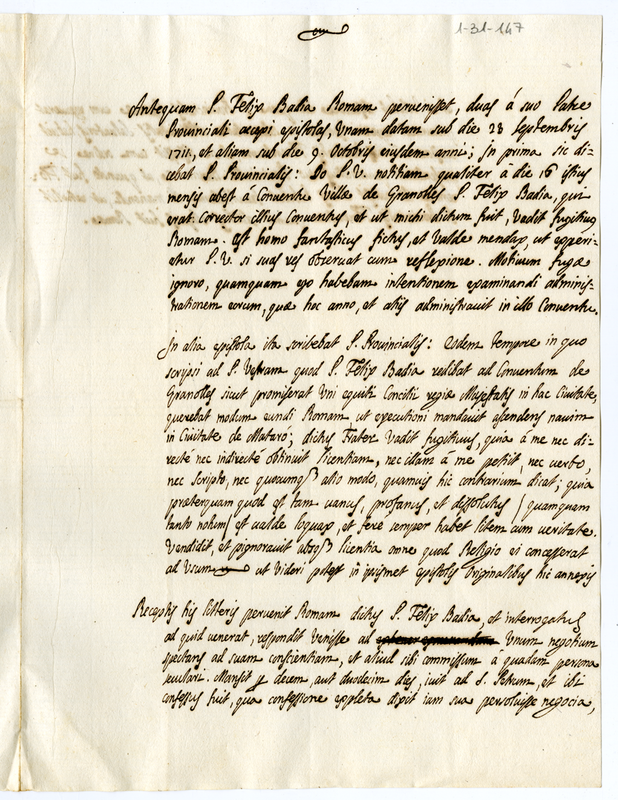 1-31-147
Antequam P. Felix Badia Romam pervenisset, duas á suo Patre
Provinciali accepi epistolas, Vnam datam sub die 23 Septembris
1711, et aliam sub die 9. Octobris eiusdem anni; Jn prima sic di-
cebat P. Provincialis: Do P. V. notitiam qualiter á die 16 istius
mensis abest á Conventu Villæ de Granolles P. Felix Badia, qui
erat Corrector illius Conventus, et ut michi dictum fuit, vadit fugitivus
Romam. est homo fantasticus fictus, et valde mendax, ut experi-
etur P. V. si suas res observat cum reflexione. Motivum fugæ
ignoro, quamquam ego habebam intentionem examinandi adminis-
trationem eorum, quæ hoc anno, et aliis administravit in illo Conventu.
Jn alia epistola ita scribebat P. Provincialis: Eodem tempore in quo
scripsi ad P. Vestram quod P. Felix Badia reddbat ad Conventum de
Granolles sicut promiserat Vni equiti Concilii regiæ Majestatis in hac Civitate,
querebat modum eundi Romam, ut executioni mandavit ascendens navim
in Civitate de Mataró; dictus Frater vadit fugitivus, quia á me nec di-
recté nec indirecté obtinuit licentiam, nec illam á me petiit, nec verbo,
nec scripto, nec quocumq3 alio modo, quamvis hic contrarium dicat; quia
præterquam quod est tam vanus, profanus, et dissolutus / quamquam
tanto notum / est valde loquax, et feré semper habet litem cum veritate.
Vendidit, et pignoravit absq3 licentia omne quod Religio ei concesserat
ad Vsum ut videri potest in ipsismet epistolis Originalibus hic annexis
Receptis his litteris pervenit Romam dictus P. Felix Badia, et interrogatus
ad quid venerat, respondit venisse ad Vnum negotium
spectans ad suam conscientiam, et aliud sibi commissum á quadam persona
seculari. Mansit p decem, aut duodecim dies, ivit ad S. Petrum, et ibi
confessus fuit, qua confessione expleta dixit iam sua persoluisse negocia,